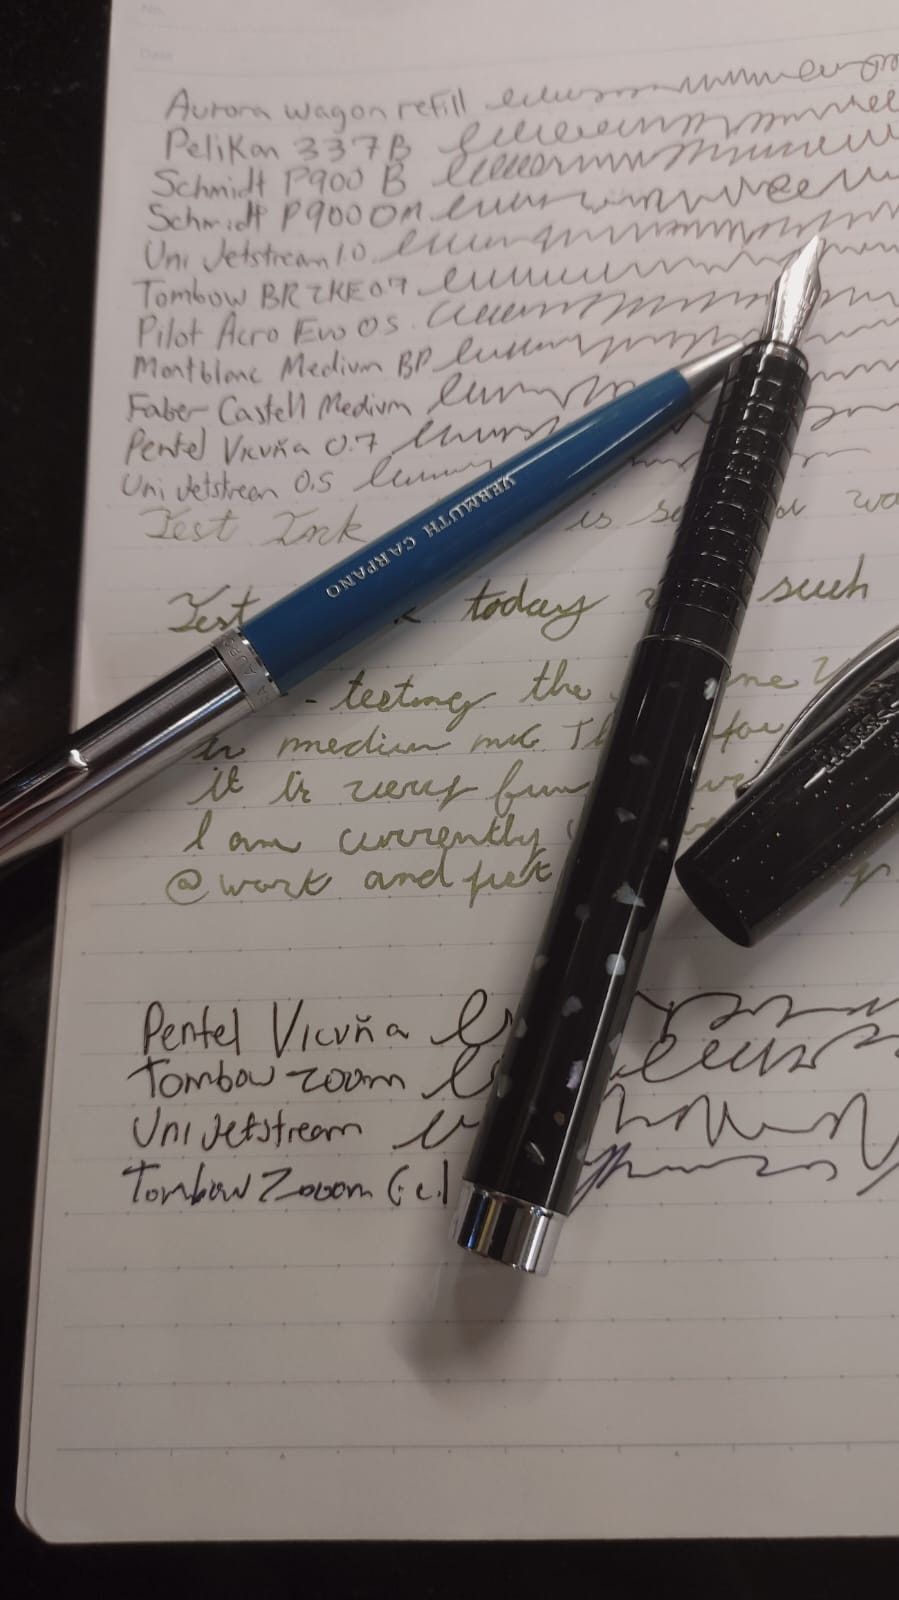 No.
Date
Aurora wagon refill
Pelikan 337 B
Schmidt P900 B
Schmidt P900 M
Uni Jetstream 1.0
Tombow BR ZKE 07
Pilot Acro Evo 05
Montblanc Medium BP
Faber Castell Medium
Pentel Vicuña 0.7
Uni Jetstream 0.5
Test Ink is
VERMUTH CARPANO
Test today such
- testing the
in medium
it is very fun
I am currently
@work and
Pentel Vicuña
Tombow zoom
Uni Jetstream
Tombow Zooom Gel